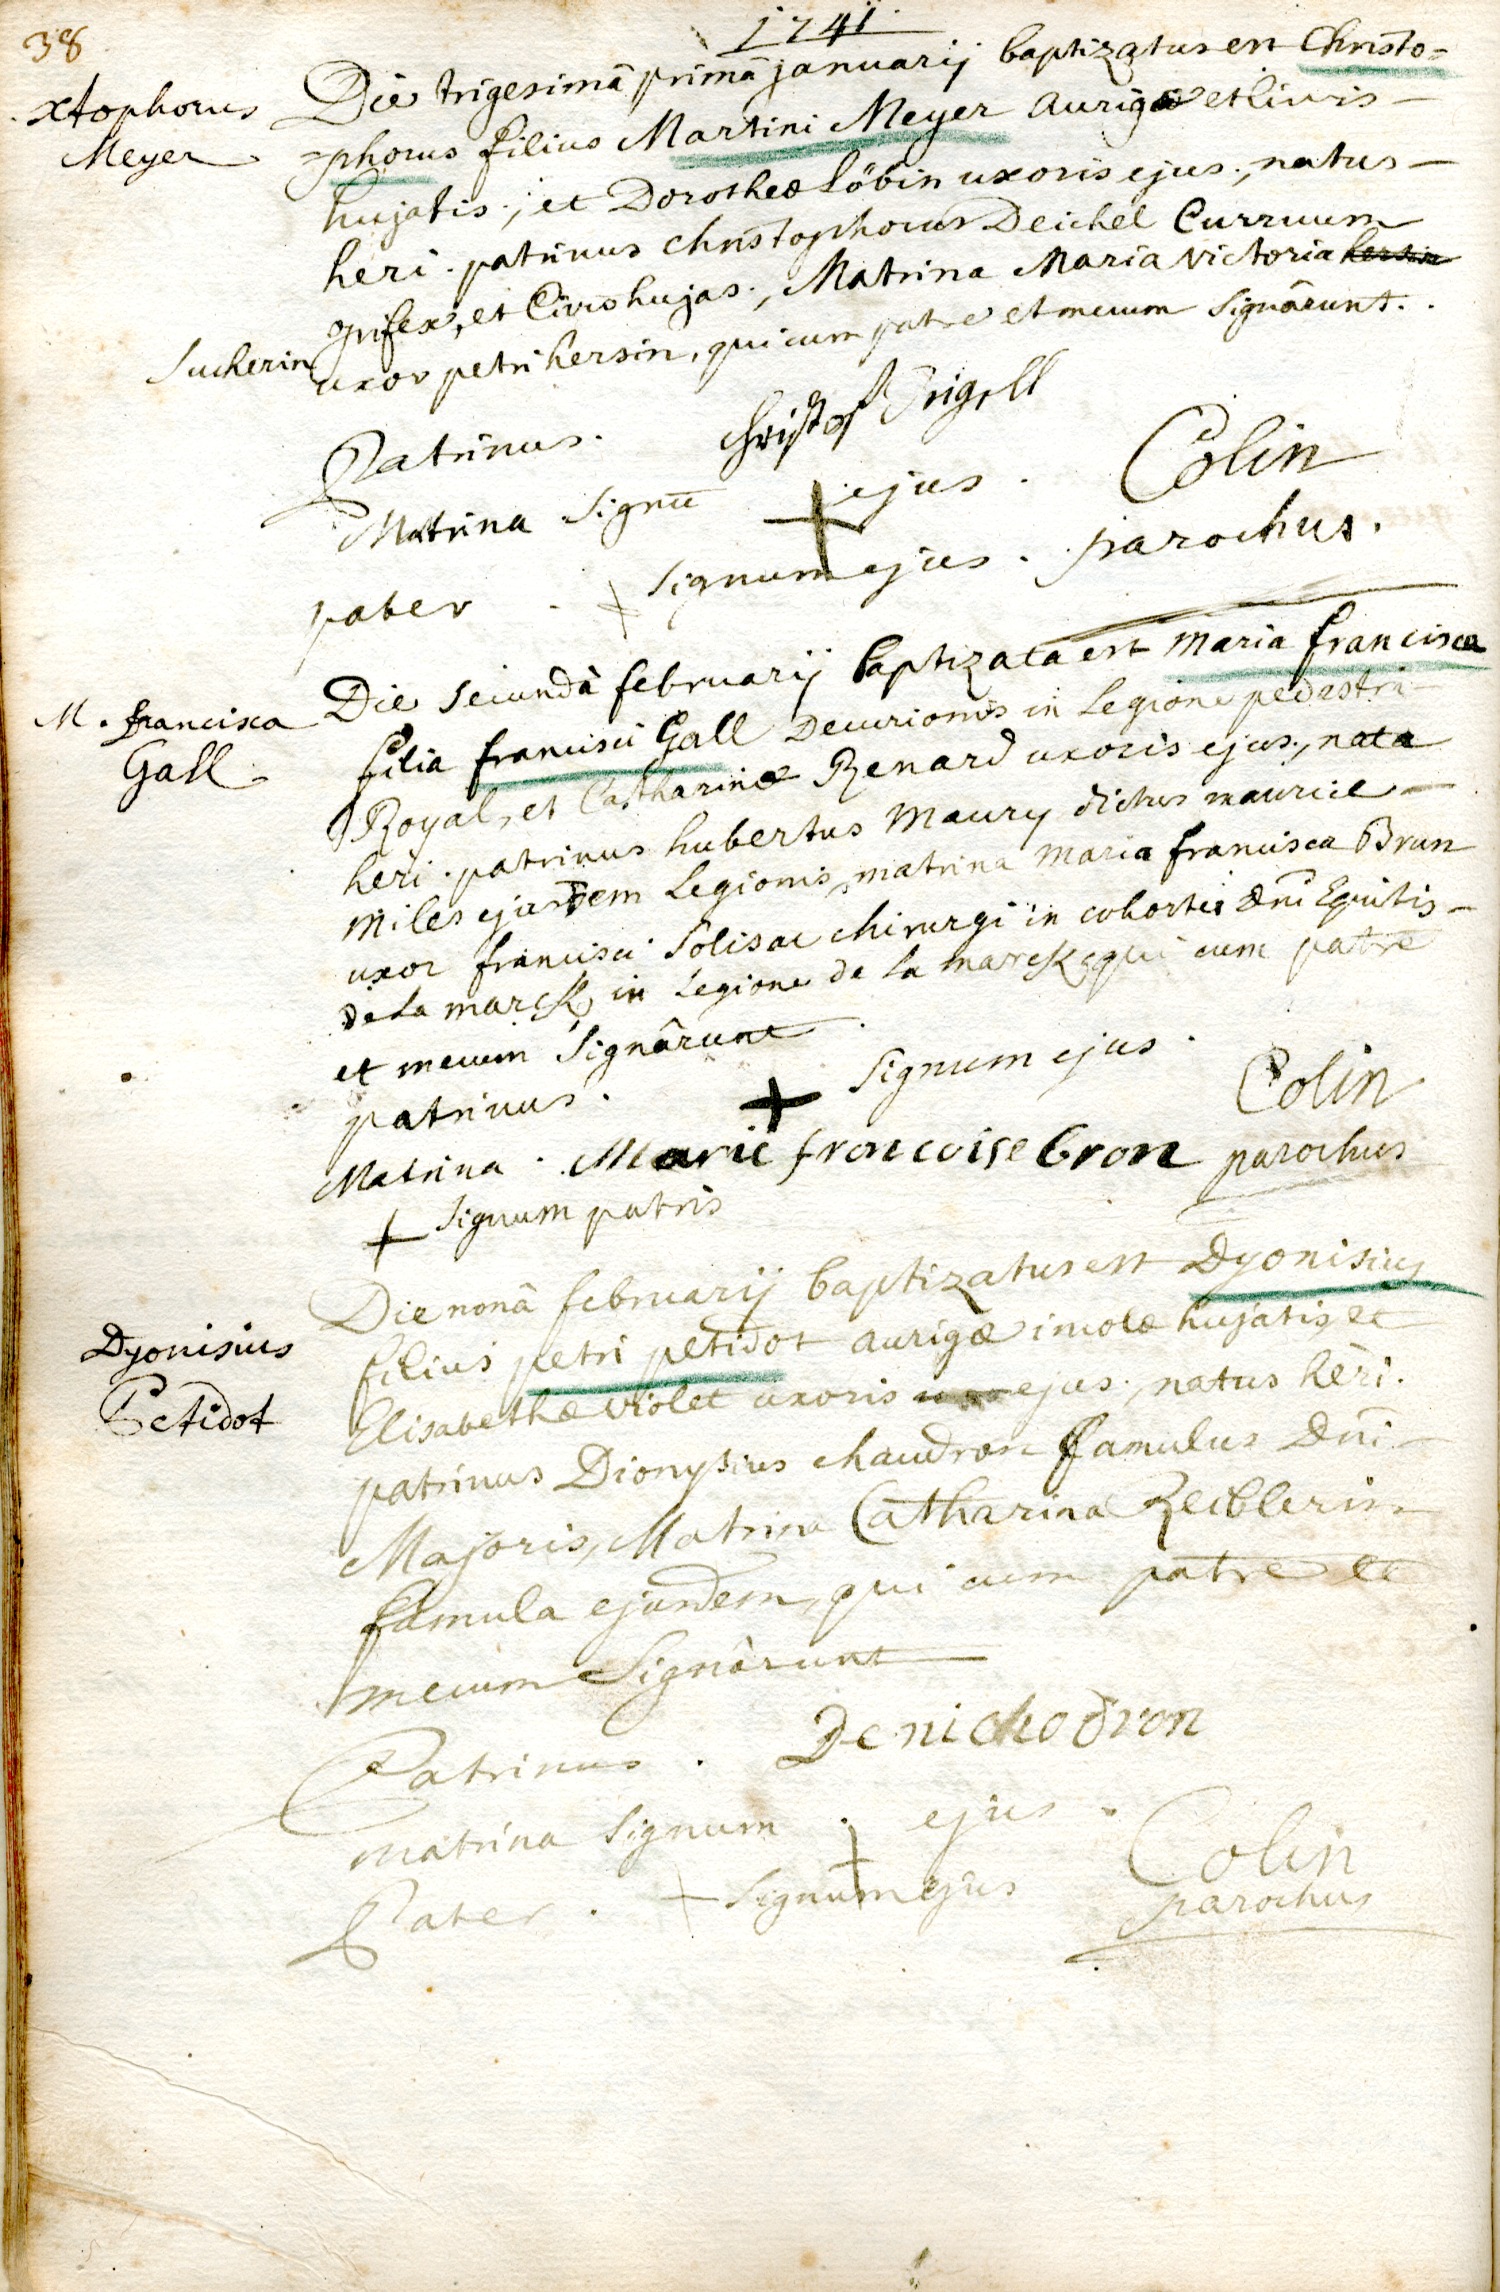 38
1741.
Xtophorus
Meyer
Die trigesimâ primâ januarij baptizatus est Christo=
=phorus filius Martini Meyer aurigæ et Civis
hujatis; et Dorotheæ Löbin uxoris ejus; natus
heri. patrinus Christophorus Deichel Curruum
opifex, et Civis hujas; Matrina Maria Victoria hersin
Sucherin
uxor petri hersin, qui cum patre et mecum signârunt.
Patrinus. Christof
Matrina Signū + ejus. Colin
pater. + signum ejus. parochus.
M. francisca
Gall
Die secundâ februarij baptizata est Maria francisca
filia francisci Gall Decurionis in Legione pedestri
Royal, et Catharinæ Renard uxoris ejus; nata
heri. patrinus hubertus Maury dictus maurice
miles ejusdem Legionis, matrina Maria francisca Brun
uxor francisci Solisac chirurgi in cohorte Dni Equitis
de La marck, in Legione de La marck, qui cum patre
et mecum signârunt.
patrinus. + signum ejus. Colin
Matrina. Marie froncoise bron parochus
+ signum patris
Dyonisius
Petidot
Die nonâ februarij baptizatus est Dyonisius
filius petri petidot aurigæ incolæ hujatis, et
Elisabethæ violet uxoris ejus; natus heri.
patrinus Dionysius chaudron famulus Dni
Majoris, Matrina Catharina Zeiblerin
famula ejusdem, qui cum patre et
mecum signârunt
Patrinus. Denichodron
matrina signum + ejus.
Pater. + signum ejus Colin
parochus